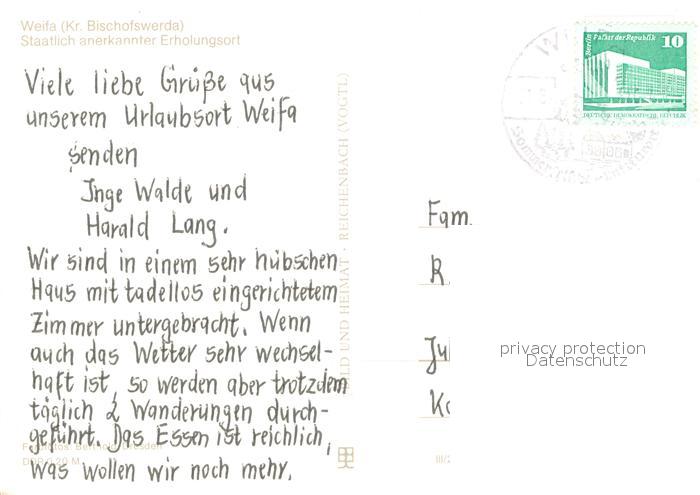 Weifa (Kr. Bischofswerda)
Staatlich anerkannter Erholungsort
Viele liebe Grüße aus
unserem Urlaubsort Weifa
senden
Inge Walde und
Harald Lang.
Wir sind in einem sehr hübschen
Haus mit tadellos eingerichtetem
Zimmer untergebracht. Wenn
auch das Wetter sehr wechsel-
haft ist, so werden aber trotzdem
täglich 2 Wanderungen durch-
geführt. Das Essen ist reichlich,
was wollen wir noch mehr.
BILD UND HEIMAT · REICHENBACH (VOGTL)
Berlin Palast der Republik 10
DEUTSCHE DEMOKRATISCHE REPUBLIK
Fam.
R
Ju
Ko
privacy protection
Datenschutz